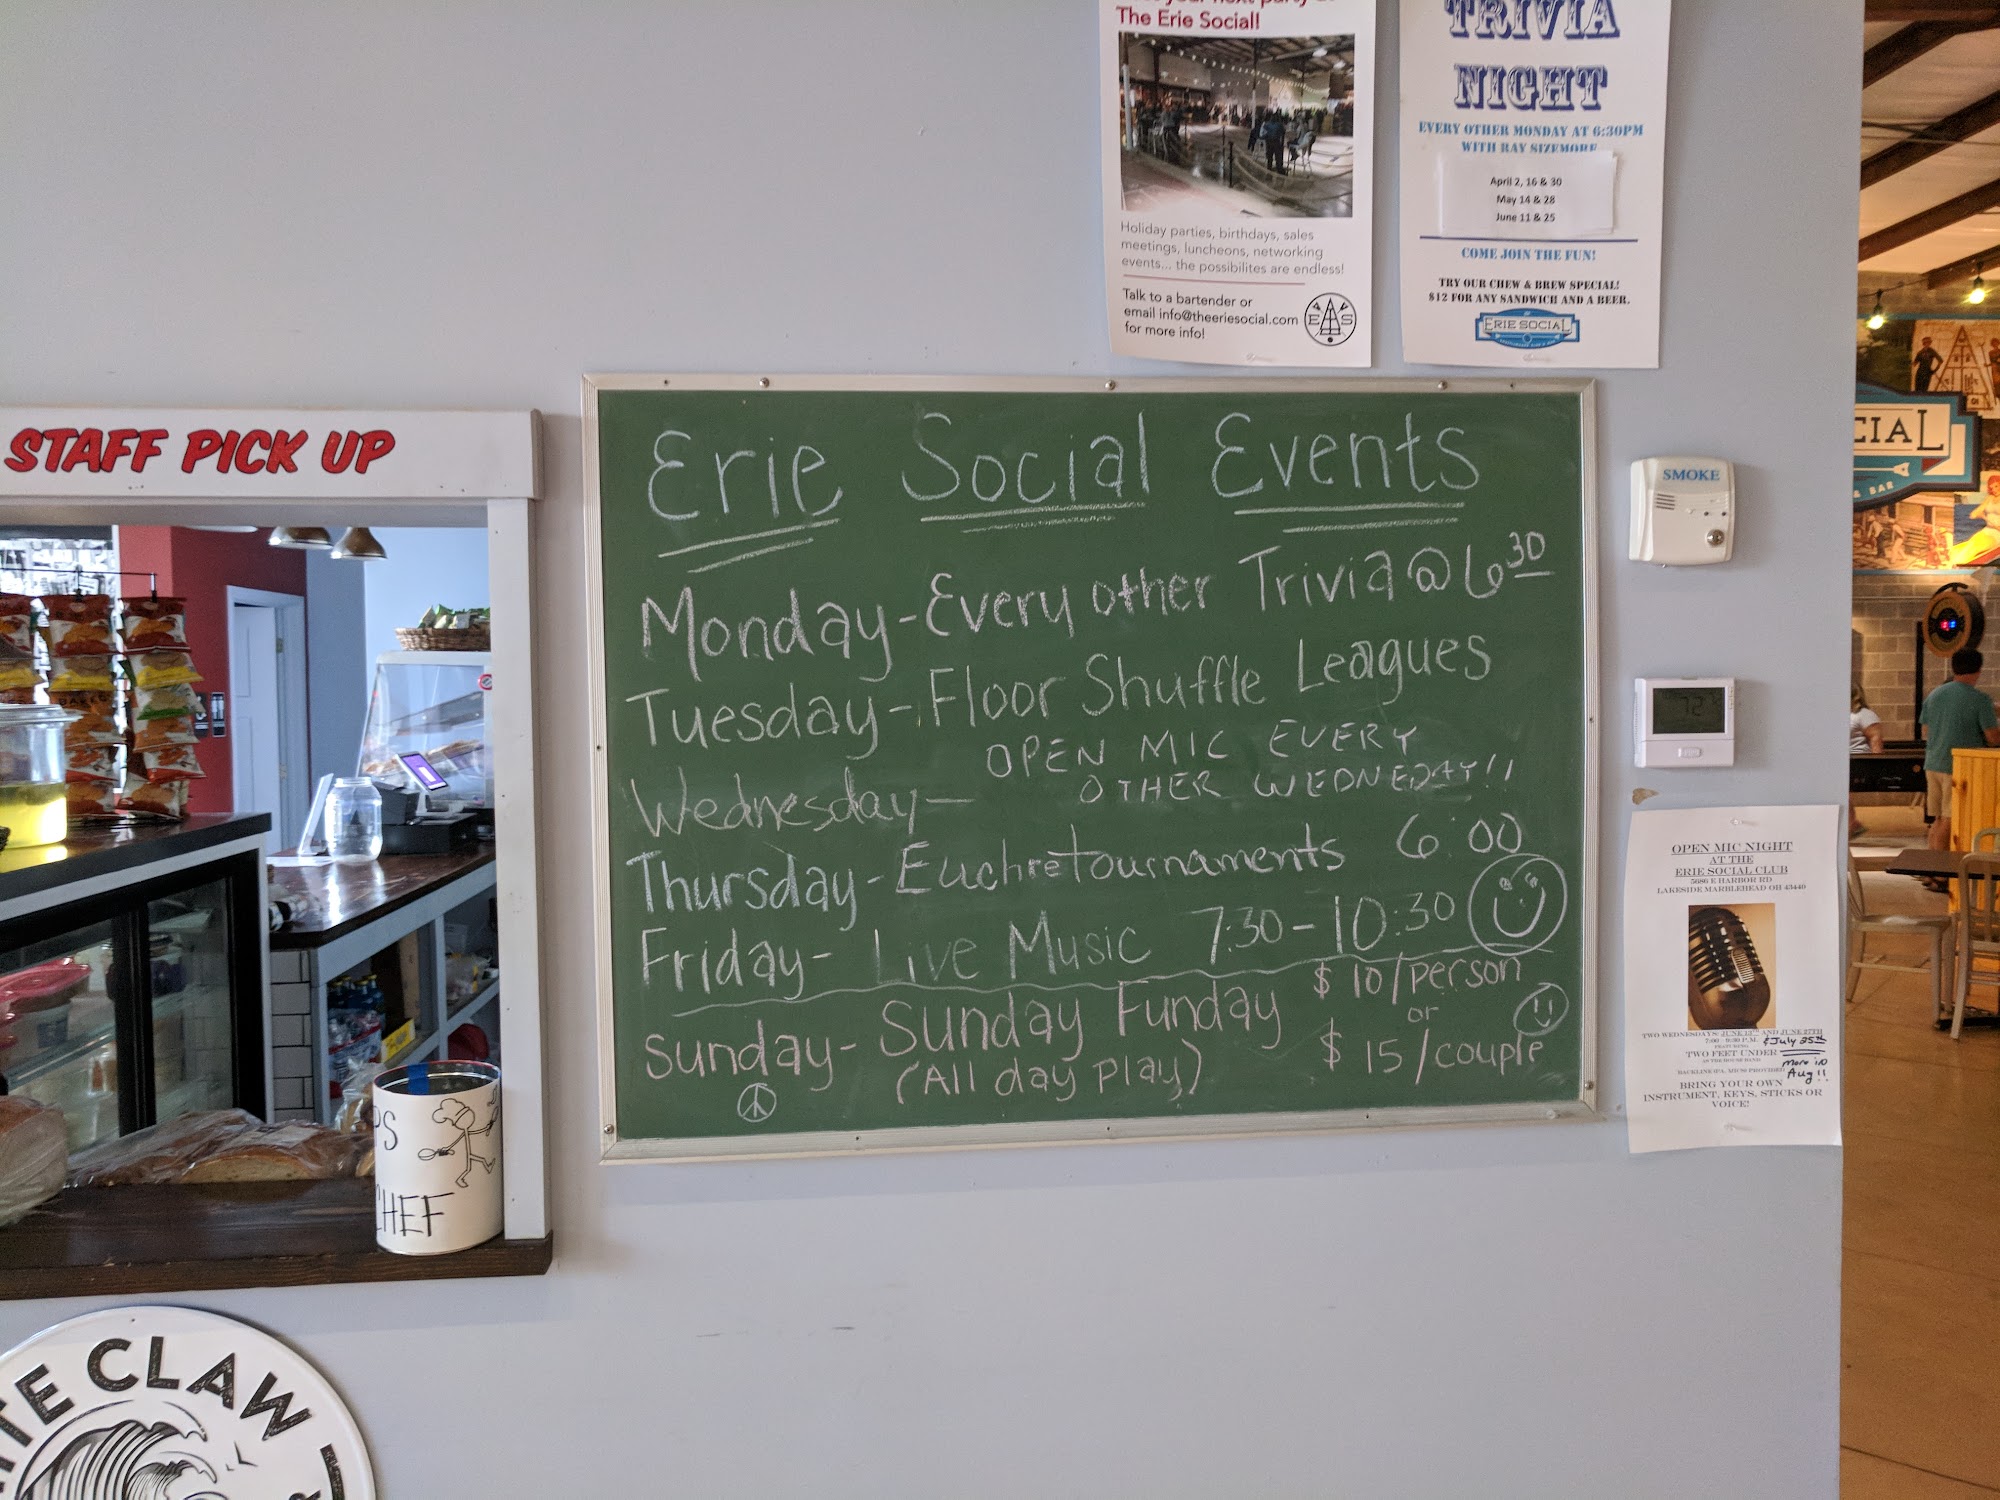 The Erie Social!
Holiday parties, birthdays, sales
meetings, luncheons, networking
events... the possibilites are endless!
Talk to a bartender or
email info@theeriesocial.com
for more info!
TRIVIA
NIGHT
EVERY OTHER MONDAY AT 6:30PM
WITH RAY SIZEMORE
April 2, 16 & 30
May 14 & 28
June 11 & 25
COME JOIN THE FUN!
TRY OUR CHEW & BREW SPECIAL!
$12 FOR ANY SANDWICH AND A BEER.
ERIE SOCIAL
STAFF PICK UP
Erie Social Events
Monday - Every other Trivia @ 6 30
Tuesday - Floor Shuffle Leagues
Wednesday - OPEN MIC EVERY
OTHER WEDNEDAY!!
Thursday - Euchre tournaments 6:00
Friday - Live Music 7:30 - 10:30
Sunday - Sunday Funday $10/person
or
(All day play) $15/couple
SMOKE
72
CIAL
& BAR
OPEN MIC NIGHT
AT THE
ERIE SOCIAL CLUB
5686 E HARBOR RD
LAKESIDE MARBLEHEAD OH 43440
TWO WEDNESDAYS: JUNE 13TH AND JUNE 27TH
7:00 - 9:30 P.M. & July 25th
FEATURING
TWO FEET UNDER
AS THE HOUSE BAND
more in
Aug!!
BRING YOUR OWN
INSTRUMENT, KEYS, STICKS OR
VOICE!
PS
CHEF
ITE CLAW